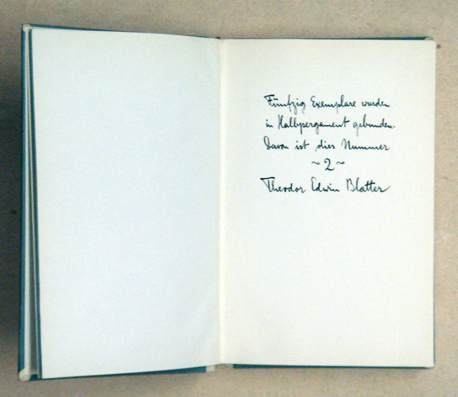 Fünfzig Exemplare wurden
in Halbpergament gebunden.
Davon ist dies Nummer
~ 2 ~
Theodor Edwin Blatter